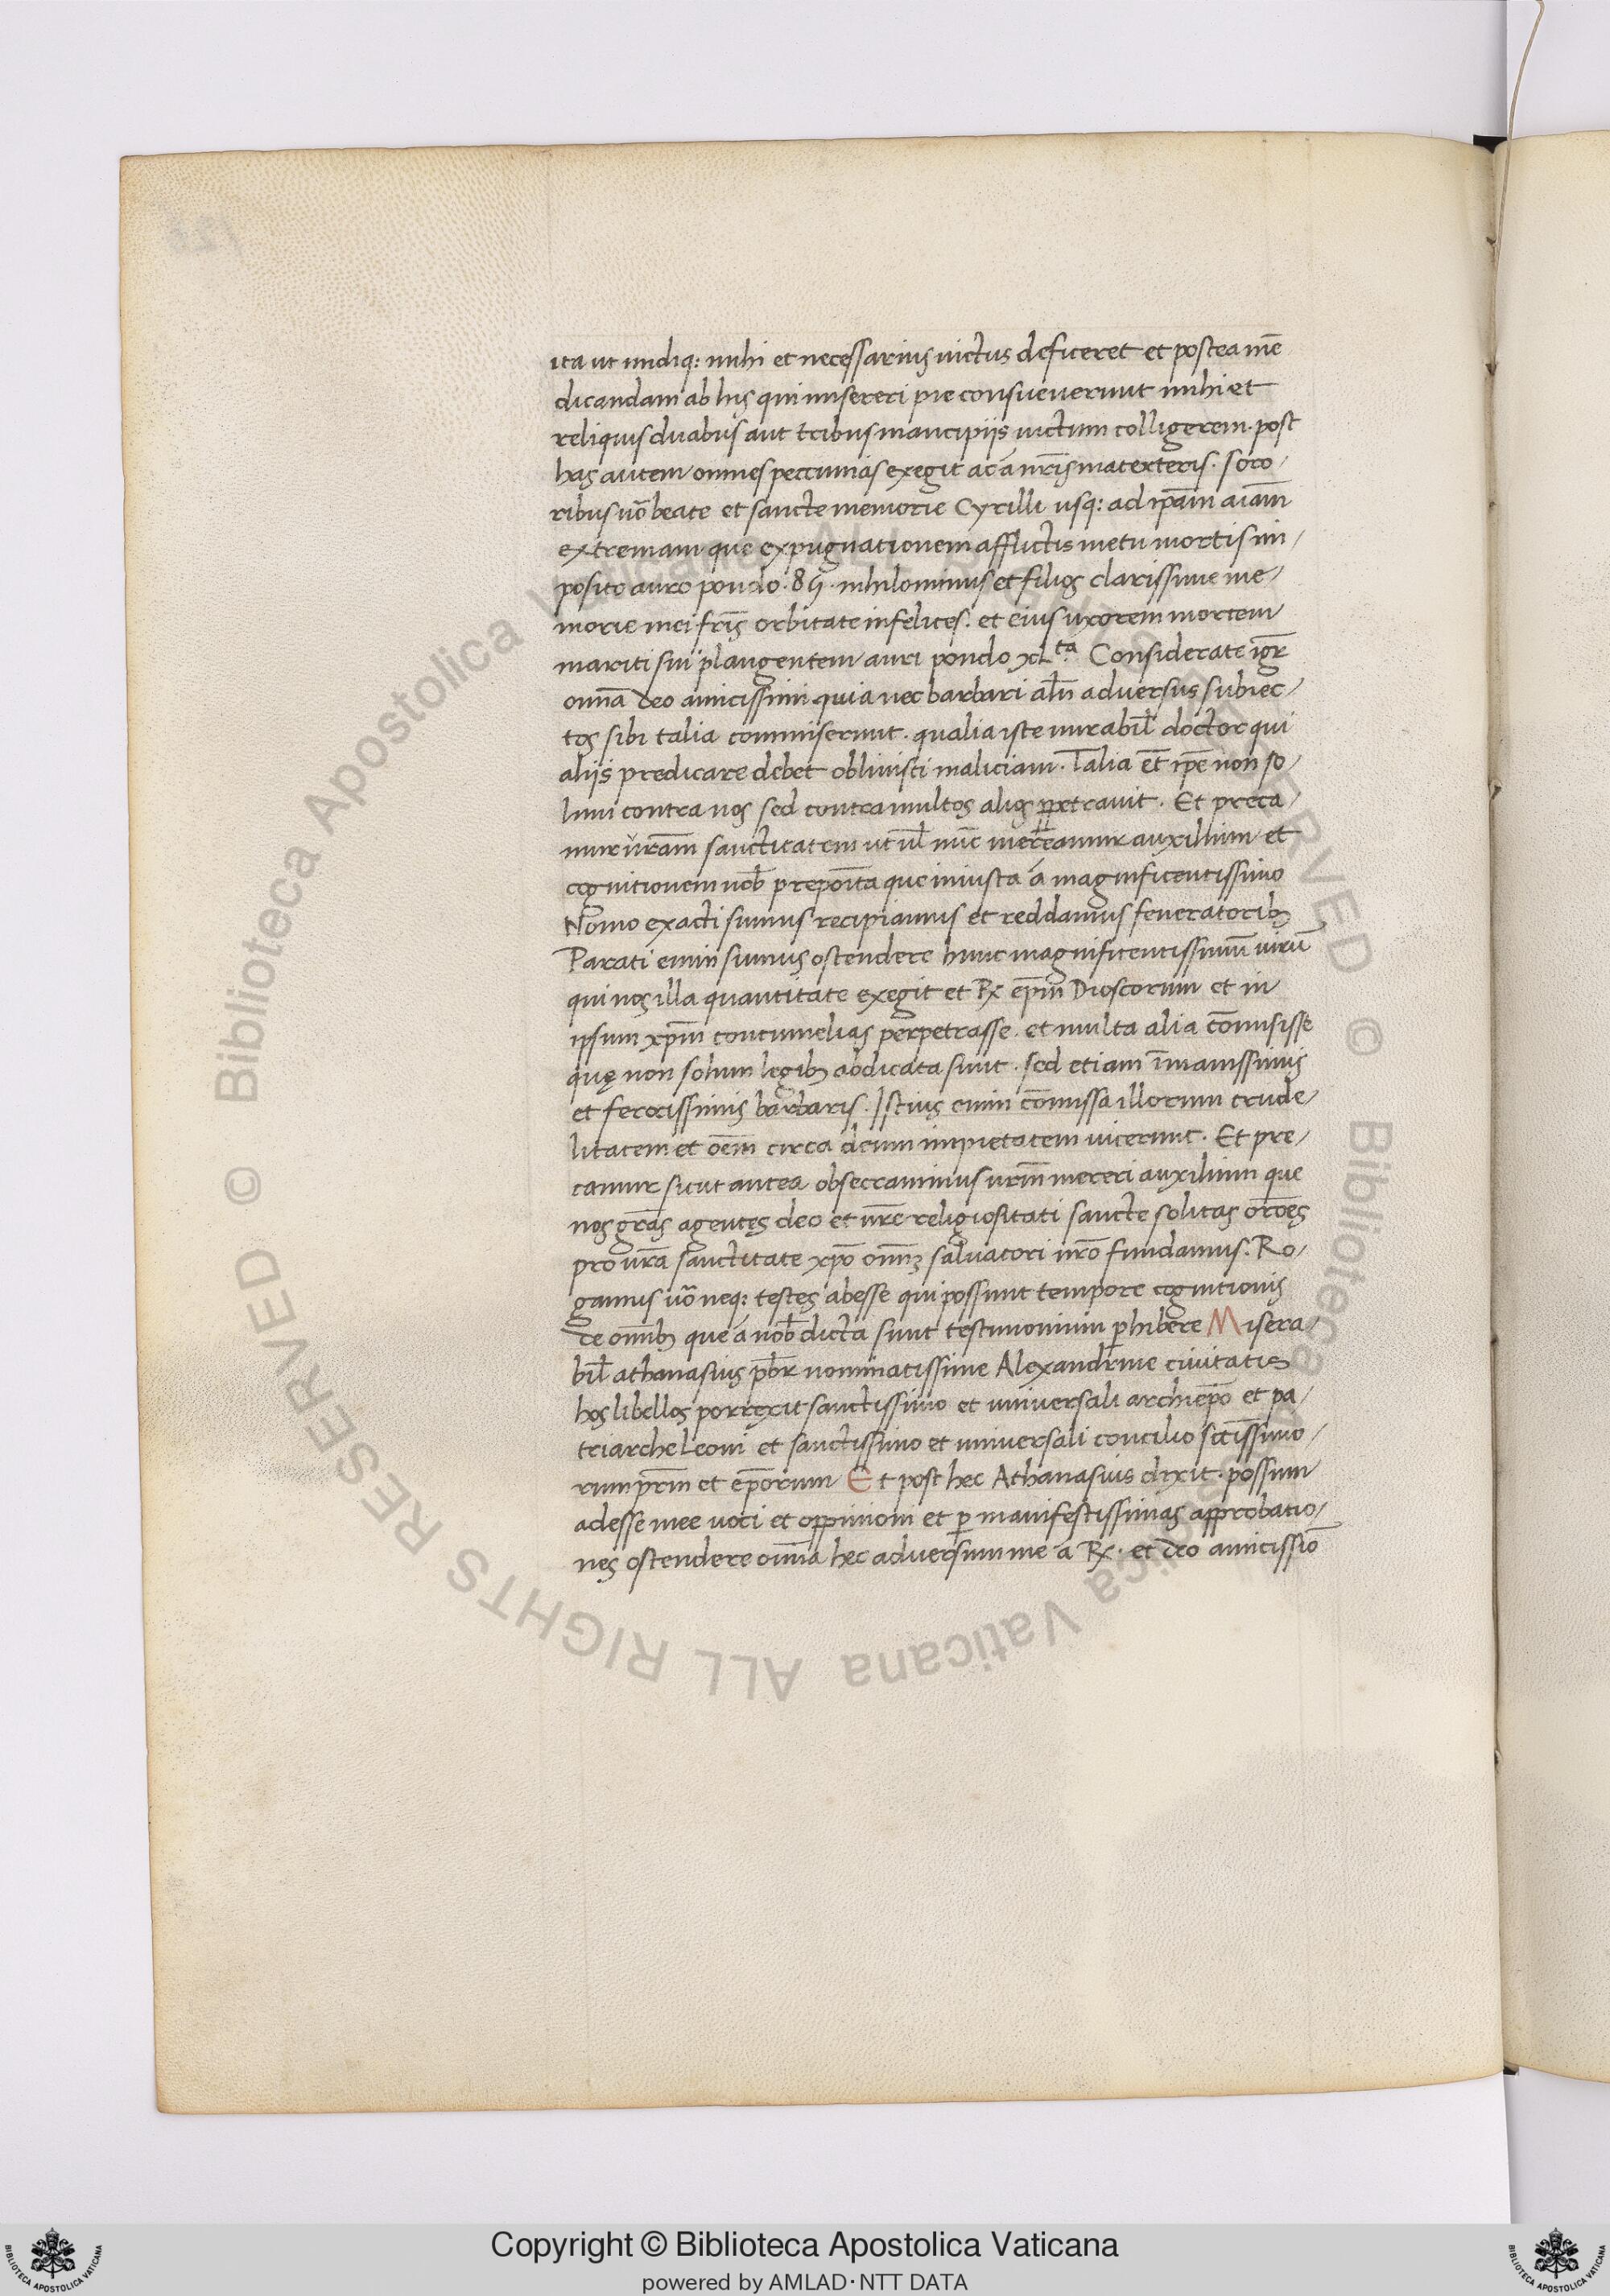 ita ut undiq: mihi et necessarius victus deficeret et postea mē
dicandam ab his qui misereri pie consueverunt mihi et
reliquis duabus aut tribus mancipiis victum colligerem. post
has autem omnes peccunias exegit ac á nr̄is matexteris. soro/
ribus uō beate et sancte memorie Cyrilli usq: ad ip̄am aīam
extremam que expugnationem afflictis metu mortis im/
posito auro pondo. 85. nihilominus et filios clarissime me/
morie mei fr̄is orbitate infelices. et eius uxorem mortem
mariti sui plangentem auri pondo xLta. Considerate igr̄
omīa deo amicissimi quia nec barbari alīn adversus subiec/
tos sibi talia commiserunt. qualia iste mirabil̄ doctor qui
aliis predicare debet oblivisci maliciam. Talia et̄ ip̄e non so
lum contra nos sed contra multos alios ꝑpetravit. Et preca/
mur vr̄am sanctitatem ut ul̄ nūc mereamur auxilium et
cognitionem nob̄ preponīta que iniusta á magnificentissimo
Nomo exacti sumus recipiamus et reddamus feneratorib3
Parati enim sumus ostendere hunc magnificentissimū virū
qui nos illa quantitate exegit et Rx ep̄m Dioscorum et in
ipsum xp̄m contumelias perpetrasse. et multa alia cōmisisse
quę non solum legib3 abdicata sunt. sed etiam īmanissimis
et ferocissimis barbaris. Istius enim cōmissa illorum crude/
litatem et oēm circa deum impietatem vicerunt. Et pre/
camur sicut antea obsecravimus vr̄m mereri auxilium que
nos gr̄as agentes deo et vr̄e religiositati sancte solitas orōes
pro vr̄a sanctitate xp̄o omīuȝ salvatori nr̄o fundamus. Ro/
gamus uō neq: testes abesse qui possunt tempore cognitionis
de omīb3 que á nob̄ dicta sunt testimonium ꝑhibere Misera/
bil̄ athanasius pb̄r nominatissime Alexandrine civitatis
hos libellos porrexit sanctissimo et universali archiep̄o et pa/
triarche Leoni et sanctissimo et universali concilio sct̄issimo/
rum pr̄m et ep̄orum Et post hec Athanasius dixit. possum
adesse mee voci et oppiniom et ꝑ manifestissimas approbatio/
nes ostendere omīa hec adversum me á Rx. et deo amicissiō
© Biblioteca Apostolica Vaticana ALL RIGHTS RESERVED © Biblioteca Apostolica Vaticana ALL RIGHTS RESERVED
Copyright © Biblioteca Apostolica Vaticana
powered by AMLAD·NTT DATA
BIBLIOTECA APOSTOLICA VATICANA
BIBLIOTECA APOSTOLICA VATICANA